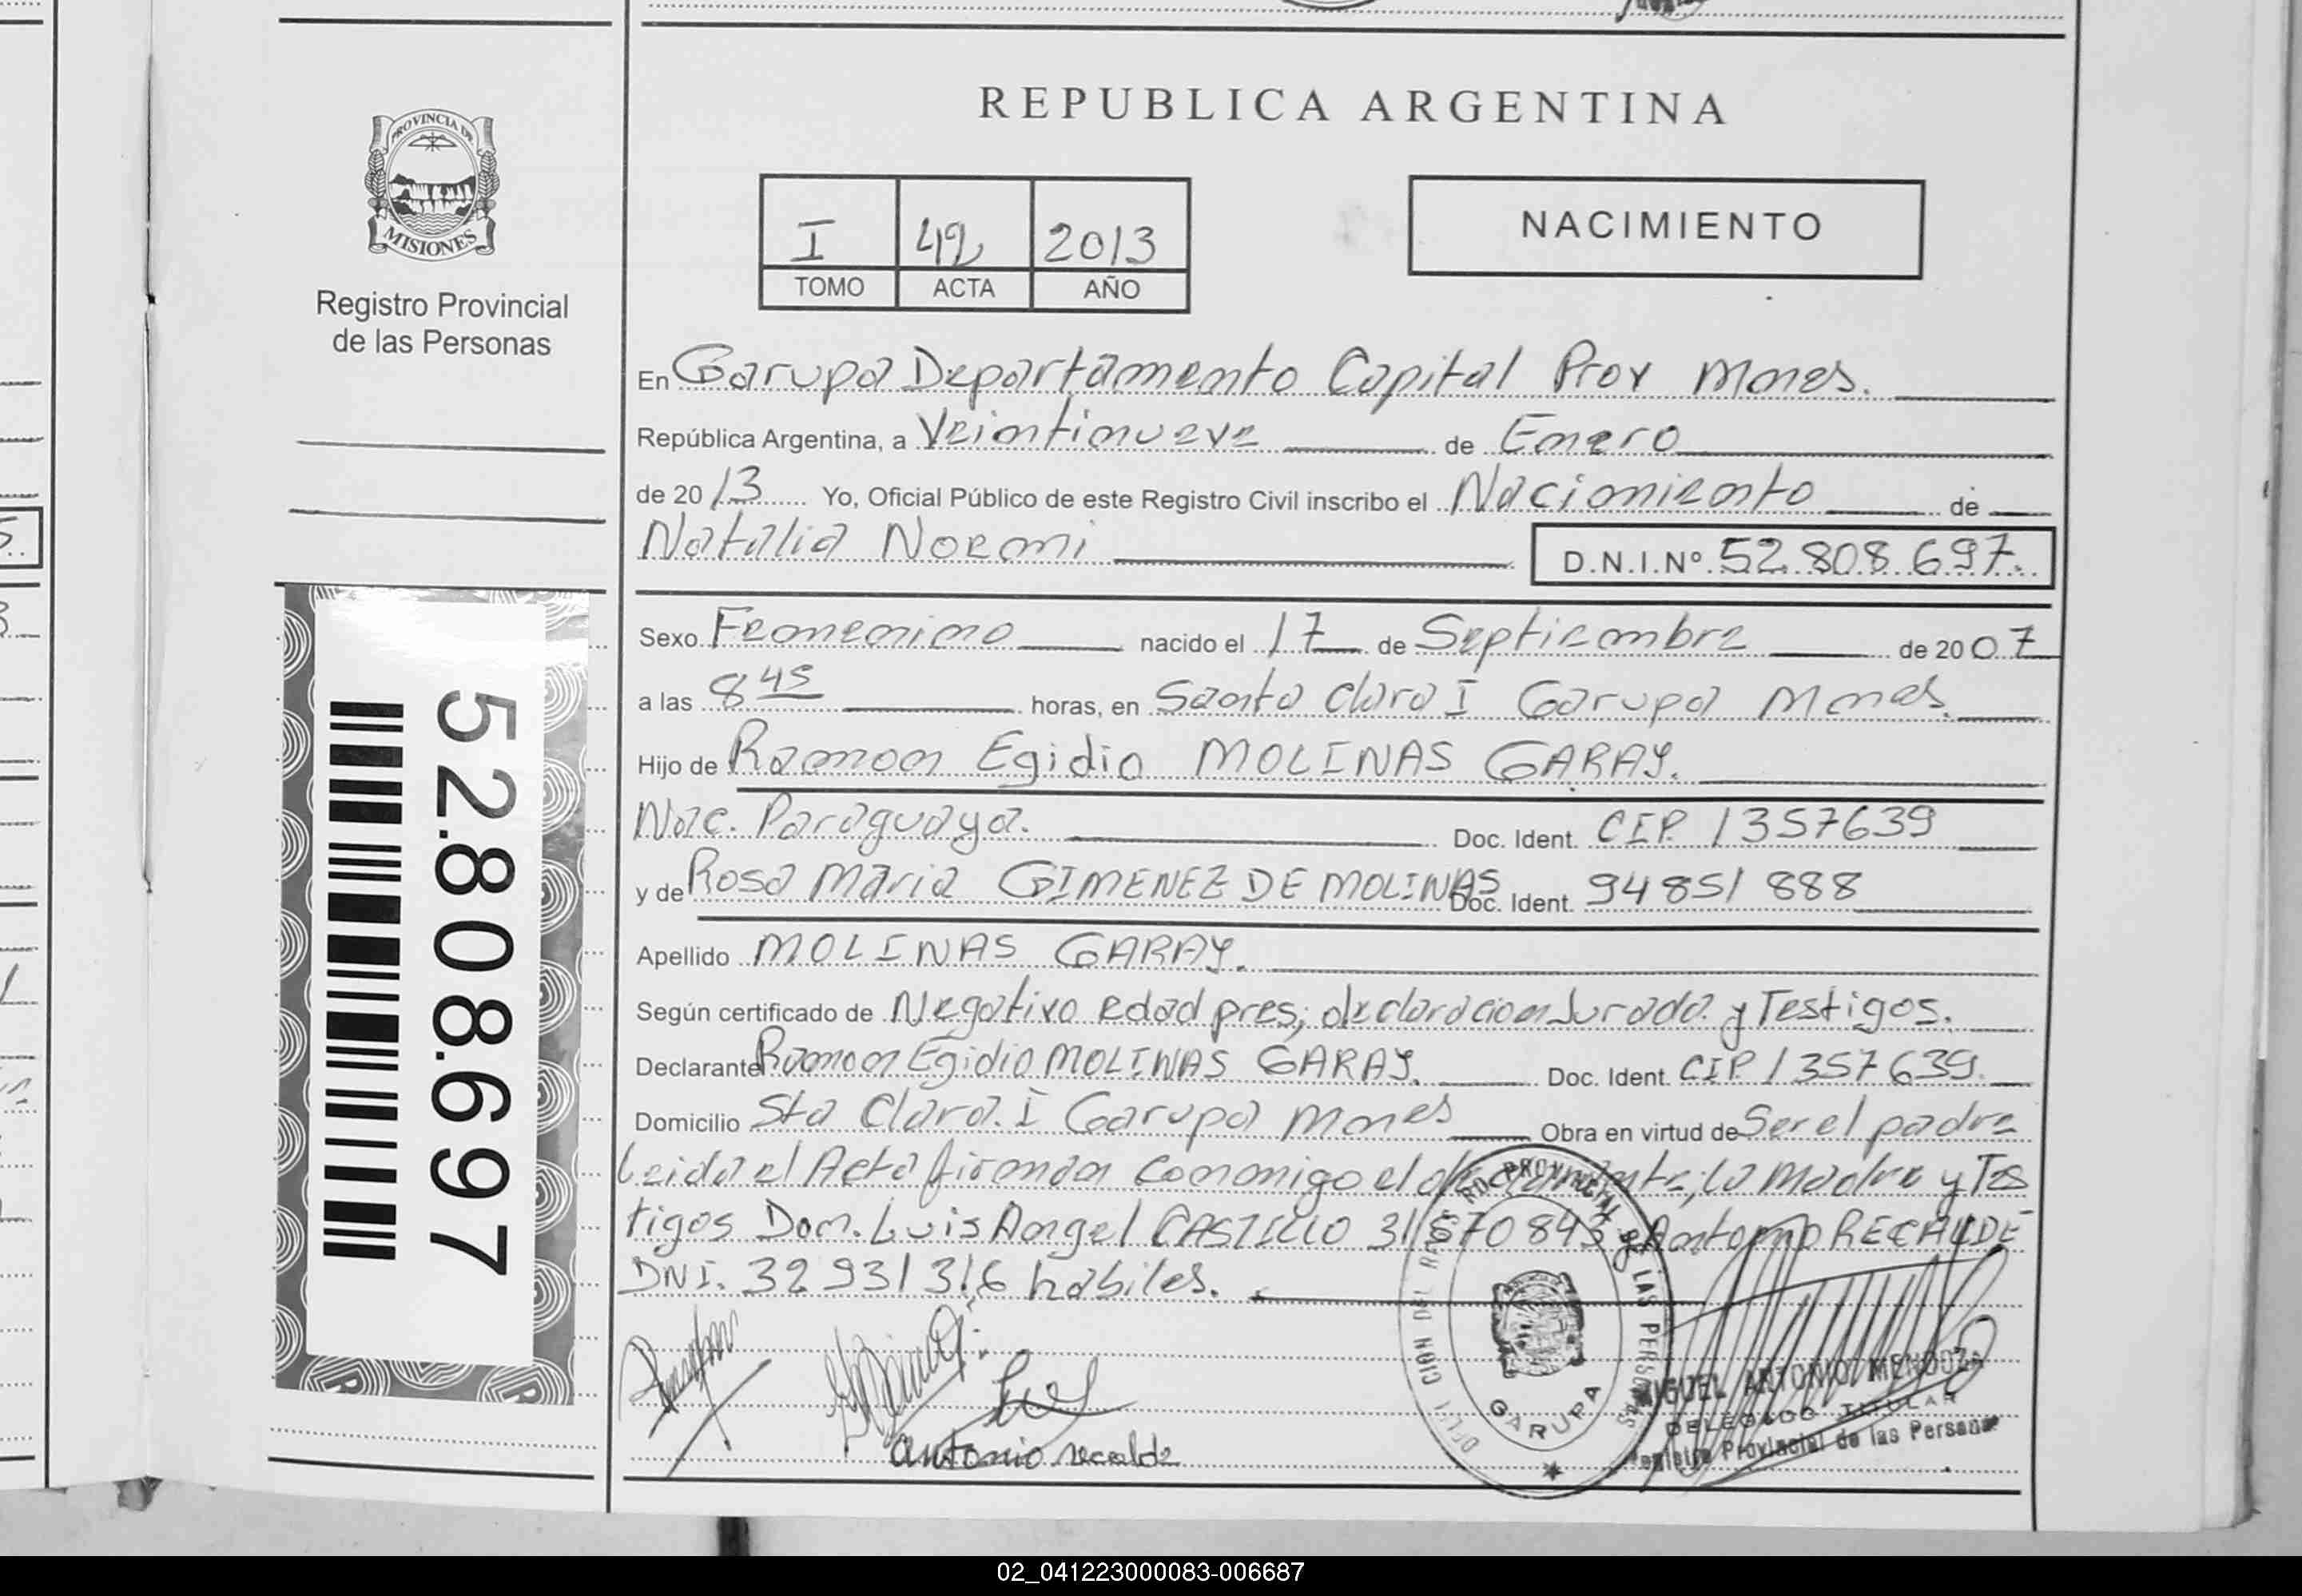 REPUBLICA ARGENTINA
PROVINCIA DE
MISIONES
Registro Provincial
de las Personas
I 42 2013
TOMO ACTA AÑO
NACIMIENTO
En Garupa Departamento Capital Prov Mnes.
República Argentina, a Veintinueve de Enero
de 20 13 Yo, Oficial Público de este Registro Civil inscribo el Nacimiento de
Natalia Noemi D.N.I.Nº 52.808.697.
Sexo Femenino nacido el 17 de Septiembre de 20 07
a las 8 45 horas, en Santa Clara I Garupa Mnes.
Hijo de Ramon Egidio MOLINAS GARAY.
Nac. Paraguaya. Doc. Ident. CIP. 1357639
y de Rosa Maria GIMENEZ DE MOLINAS Doc. Ident. 94851888
Apellido MOLINAS GARAY.
Según certificado de Negativo edad pres; declaracion Jurada y Testigos.
Declarante Ramon Egidio MOLINAS GARAY. Doc. Ident. CIP. 1357639.
Domicilio Sta Clara. I Garupa Mnes Obra en virtud de Ser el padre
Leida el Acta firman conmigo el declarante; la madre y Tes
tigos Don. Luis Angel CASTILLO 31570843 y Antonio RECALDE
DNI. 32931316 habiles.
Antonio recalde
PROVINCIAL DE LAS PERSONAS
GARUPA
MIGUEL ANTONIO MENDOZA
DELEGADO TITULAR
Registro Provincial de las Personas
52.808.697
02_041223000083-006687